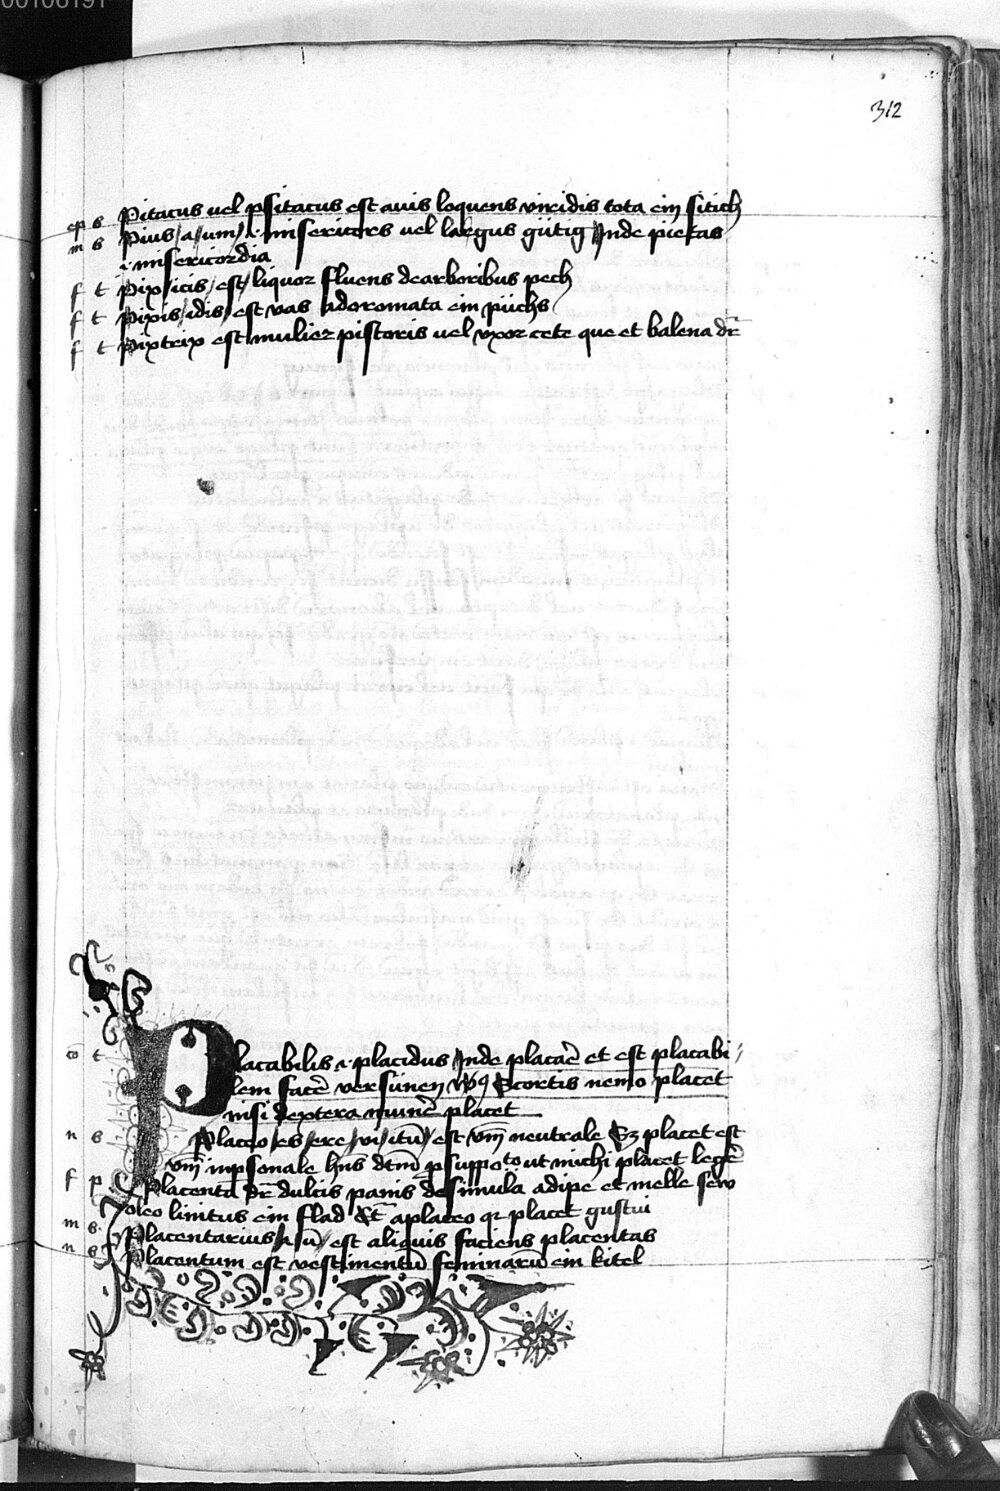 00106191
312
ep s Pitacus uel psitacus est auis loquens viridis tota ein sitich
m s Pius / a / um / .i. misericors uel largus gütig Inde pietas
.i. misericordia
f t Pix / icis / est / liquor fluens dearboribus pech
f t Pixis / idis / est vas adoromata ein püchs
f t Pixtrix est mulier pistoris uel vxor cete que et balena dr̄
co t Placabilis .i. placidus Inde placar̄e et est placabi /
lem facer̄e versünen Scortis nemo placet
nisi dextera muner̄e placet
n s Placeo / es / ere / vi / itū / est vm̄ neutrale Sz placet est
vm̄ inpsonale hn̄s dtm̄ p suppoto ut michi placet leger̄e
f p Placenta dr̄ dulcis panis de simula adipe et melle sew
oleo linitus ein flad Et aplaceo qr placet gustui
m s Placentarius / a / ū / est aliquis faciens placentas
n s Placentum est vestimentū feminarū ein kitel